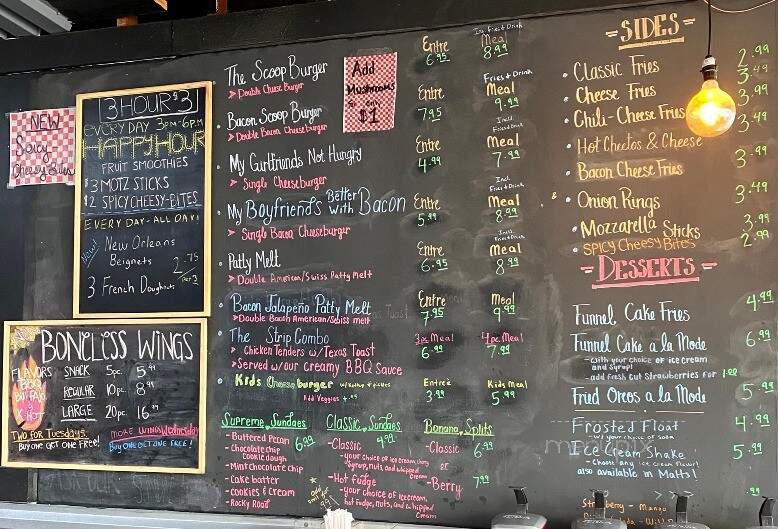 NEW
Spicy
3 HOUR $3
EVERY DAY 3PM-6PM
HAPPY HOUR
FRUIT SMOOTHIES
$3 MOTZ STICKS
$2 SPICY CHEESY-BITES
EVERY DAY-ALL DAY!
New!
New Orleans
Beignets
3 French Doughnuts 2.75
BONELESS WINGS
FLAVORS
BBQ
BUFFALO
X HOT
SNACK 5pc.
REGULAR 10pc. 8.99
LARGE 20pc.
TWO FOR TUESDAYS!
BUY ONE GET ONE FREE!
MORE WINGS WEDNESDAY
BUY ONE GET ONE FREE!
Add
Mushrooms
$1
The Scoop Burger
➤ Double Cheese Burger
Entre 6.95
Fries & Drink
Meal 8.99
Bacon Scoop Burger
➤ Double Bacon Cheeseburger
Entre 7.95
Fries & Drink
Meal 9.99
My Girlfriends Not Hungry
➤ Single Cheeseburger
Entre 4.99
Incl.
Meal 7.99
My Boyfriend's Better With Bacon
➤ Single Bacon Cheeseburger
Entre
Incl.
Fries & Drink
Meal 8.99
Patty Melt
➤ Double American/Swiss Patty Melt
Entre 6.95
Incl.
Fries & Drink
Meal 8.99
Bacon Jalapeño Patty Melt
➤ Double Bacon American/Swiss melt
Entre 7.95
Meal 9.99
The Strip Combo
➤ Chicken Tenders w/Texas Toast
➤ Served w/our creamy BBQ Sauce
3pc Meal 6.99
4pc Meal 7.99
• Kids Cheeseburger
Add Veggies
Entree 3.99
Kids Meal 5.99
Supreme Sundaes 6.99
- Buttered Pecan
- Chocolate chip
Cookie dough
- Mint chocolate chip
- Cake batter
- Cookies & Cream
- Rocky Road
Classic Sundaes 4.99
- Classic
- your choice of ice cream,
Syrup, nuts, and whipped
Cream
- Hot fudge
- your choice of ice cream,
hot fudge, nuts, and whipped
Cream
Banana Splits
- Classic 6.99
or
- Berry 7.99
-SIDES-
• Classic Fries 2.99
• Cheese Fries 3.49
• Chili-Cheese Fries 3.99
• Hot Cheetos & Cheese 3.49
• Bacon Cheese Fries 3.99
• Onion Rings 3.49
• Mozzarella Sticks 3.99
• SPICY Cheesy Bites 2.99
-DESSERTS-
Funnel Cake Fries 4.99
Funnel Cake a la Mode 6.99
- with your choice of ice cream
and syrup!
- add Fresh Cut Strawberries for 1.00
Fried Oreos a la Mode 5.99
Frosted Float 4.99
- w/ your choice of soda
Ice Cream Shake 5.99
- Choose any ice cream flavor!
also available in Malts!
Strawberry - Mango